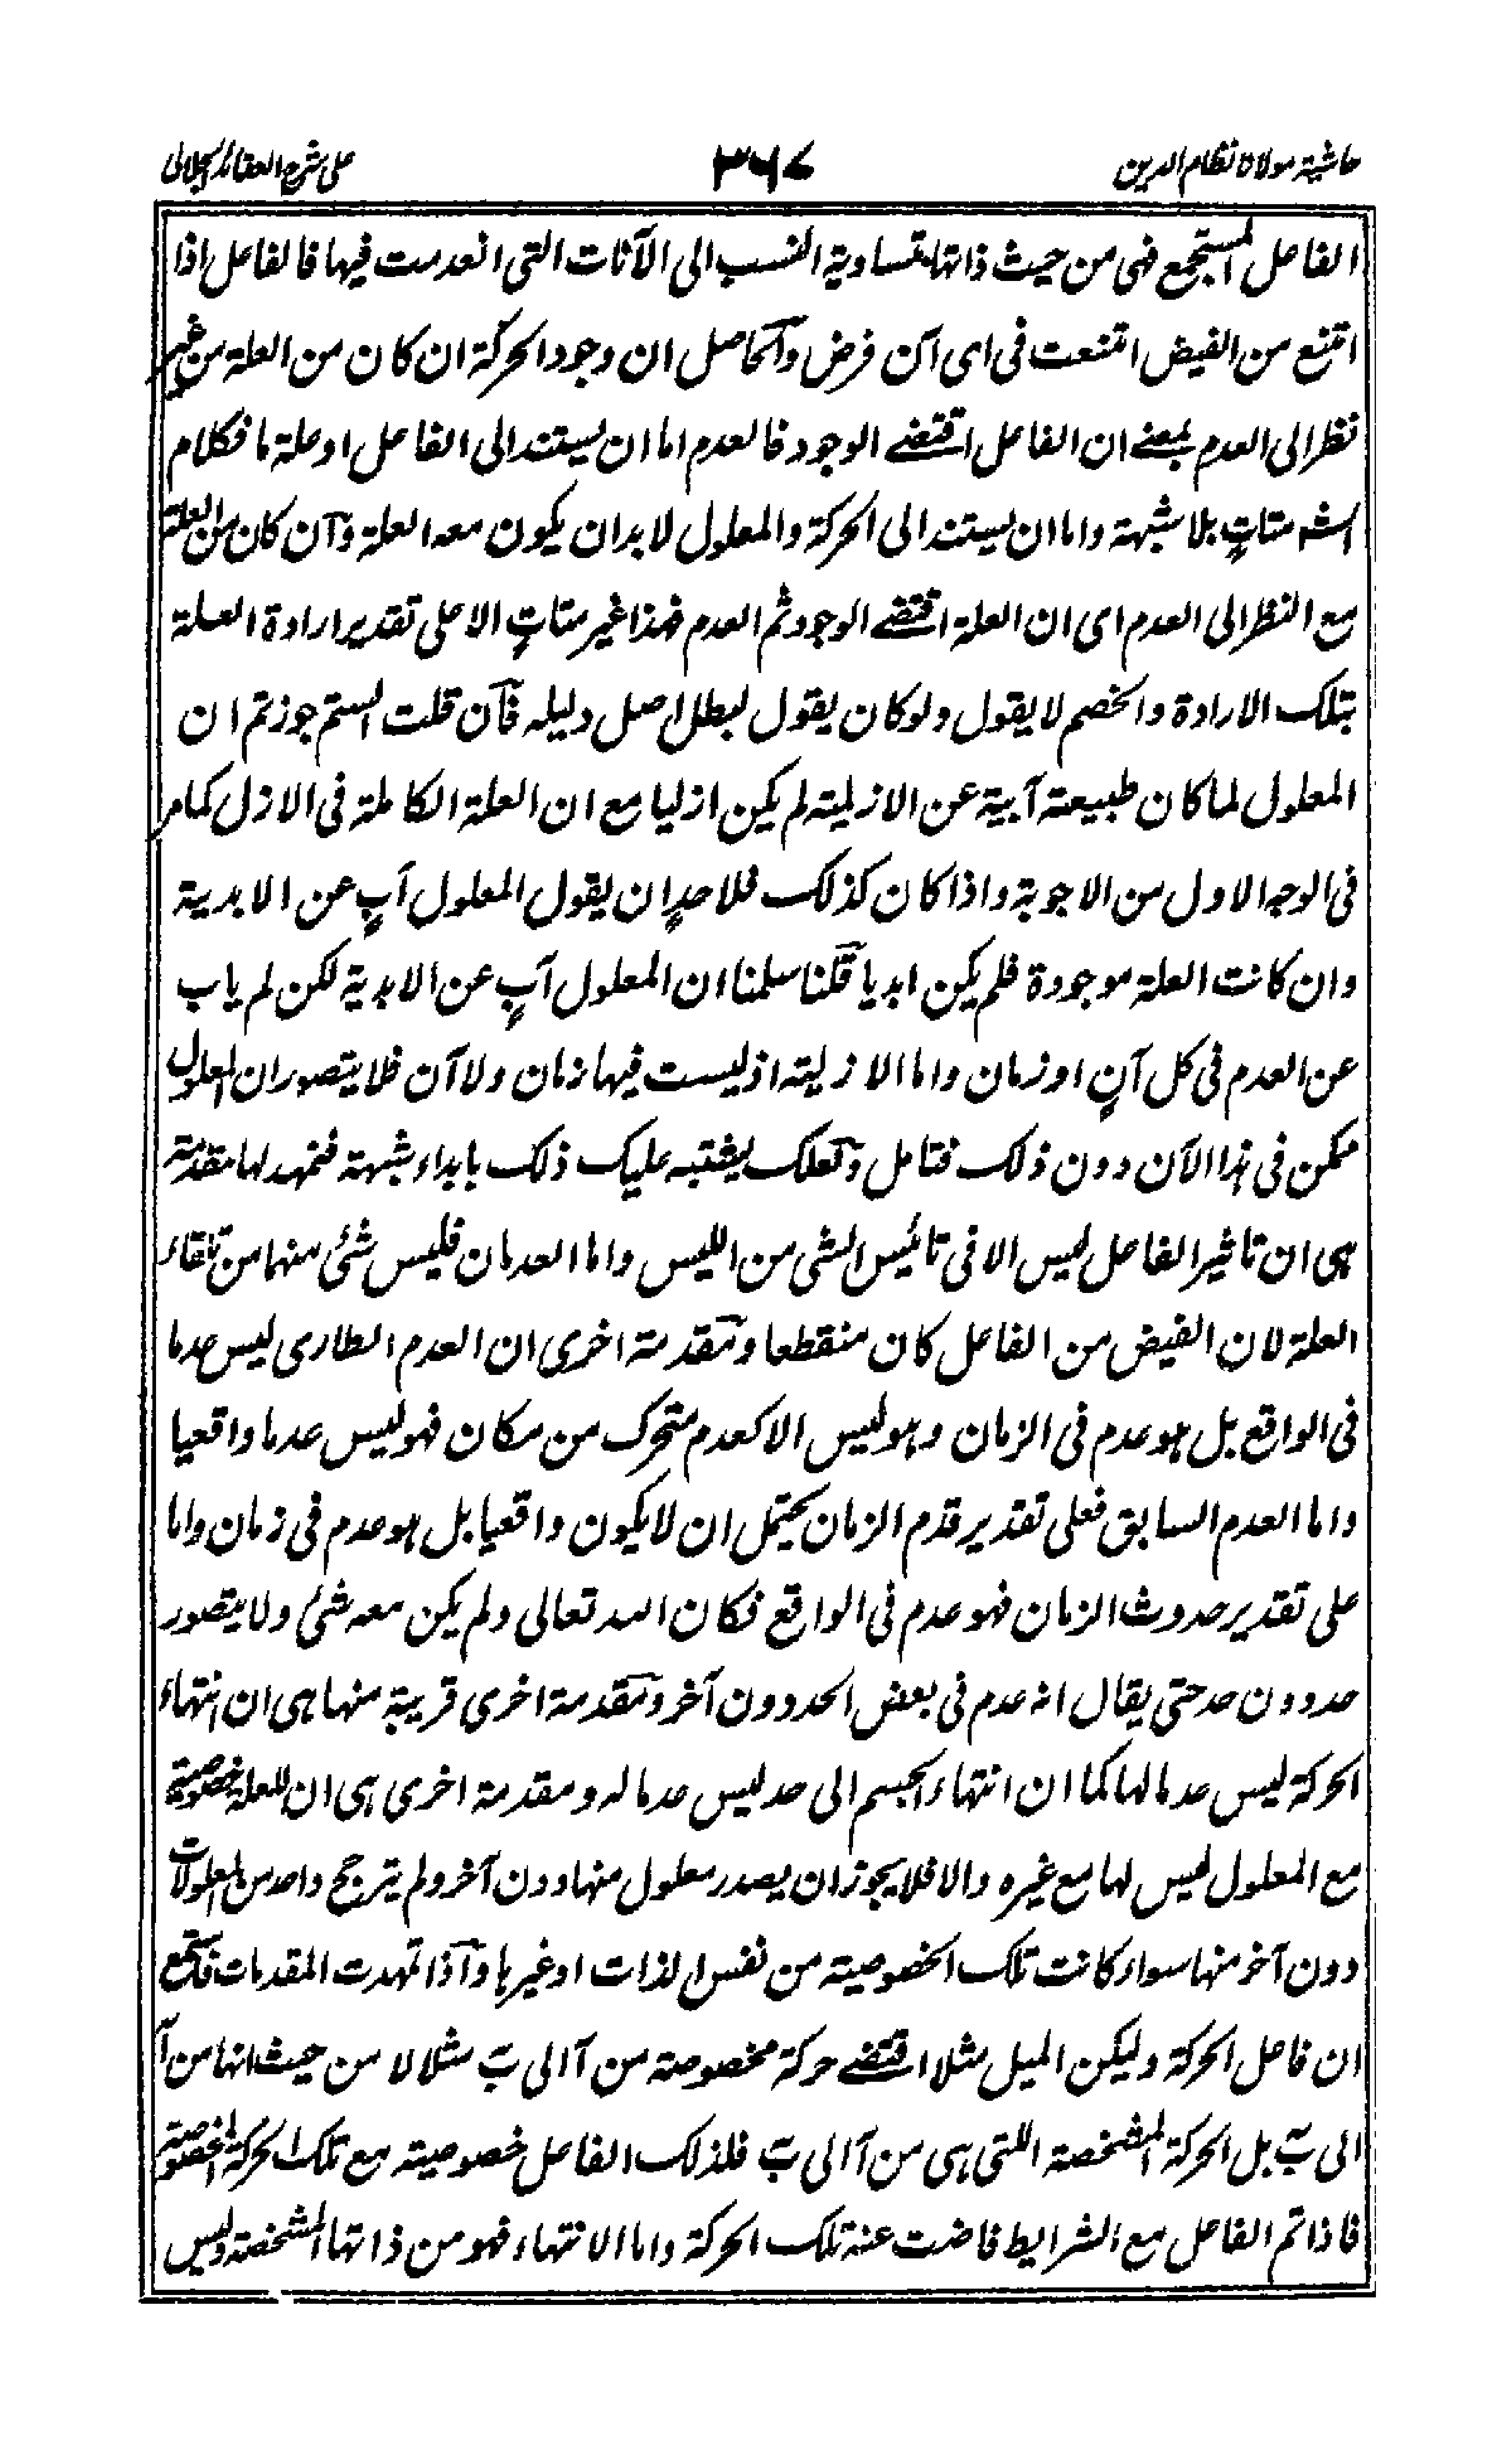 حاشية مولانا نظام الدين
٣٦٧
على شرح العقائد الجلالى
الفاعل المستجمع فهى من حيث ذاتها متساوية النسب الى الآنات التى انعدمت فيها فالفاعل اذا
امتنع من الفيض امتنعت فى اى آن فرض والحاصل ان وجود الحركة ان كان من العلة من غير
نظر الى العدم بمعنے ان الفاعل اقتضے الوجود فالعدم اما ان يستند الى الفاعل او علة ما فكلام
الش متاتٍ بلا شبهة واما ان يستند الى الحركة والمعلول لا بد ان يكون معه العلة وآن كان من العلة
مع النظر الى العدم اى ان العلة اقتضے الوجود ثم العدم فهذا غير متاتٍ الا على تقدير ارادة العلة
بتلك الارادة والخصم لا يقول ولو كان يقول لبطل اصل دليله فآن قلت الستم جوزتم ان
المعلول لما كان طبيعته آبية عن الازلية لم يكن ازليا مع ان العلة الكاملة فى الازل كما مر
فى الوجه الاول من الاجوبة واذا كان كذلك فلاحدٍ ان يقول المعلول آبٍ عن الابدية
وان كانت العلة موجودة فلم يكن ابديا قلنا سلمنا ان المعلول آبٍ عن الابدية لكن لم ياب
عن العدم فى كل آنٍ او زمان واما الازلية اذ ليست فيها زمان ولا آن فلا يتصور ان المعلول
ممكن فى هذا الآن دون ذلك فتامل ولعلك يشتبه عليك ذلك بابداء شبهة فنمهد لها مقدمة
هى ان تاثير الفاعل ليس الا فى تائيس الشى من الليس واما العدمان فليس شئ منهما من تلقاء
العلة لان الفيض من الفاعل كان منقطعا ومقدمة اخرى ان العدم الطارى ليس عدما
فى الواقع بل هو عدم فى الزمان وهو ليس الا كعدم متحرك من مكان فهو ليس عدما واقعيا
واما العدم السابق فعلى تقدير قدم الزمان يحتمل ان لا يكون واقعيا بل هو عدم فى زمان واما
على تقدير حدوث الزمان فهو عدم فى الواقع فكان الله تعالى ولم يكن معه شئ ولا يتصور
حد دون حد حتى يقال انه عدم فى بعض الحد دون آخر ومقدمة اخرى قريبة منها هى ان انتهاء
الحركة ليس عدما لها كما ان انتهاء الجسم الى حد ليس عدما له ومقدمة اخرى هى ان للعلة خصوصية
مع المعلول ليس لها مع غيره والا فلا يجوز ان يصدر معلول منها دون آخر ولم يترجح واحد من المعلولات
دون آخر منها سواء كانت تلك الخصوصية من نفس الذات او غيرها وآذا تمهدت المقدمات فاستمع
ان فاعل الحركة وليكن الميل مثلا اقتضے حركة مخصوصة من آ الى بَ مثلا لا من حيث انها من آ
الى بَ بل الحركة المشخصة اللتى هى من آ الى بَ فلذلك الفاعل خصوصية مع تلك الحركة المخصوصة
فاذا تم الفاعل مع الشرايط فاضت عنه تلك الحركة واما الانتهاء فهو من ذاتها المشخصة وليس